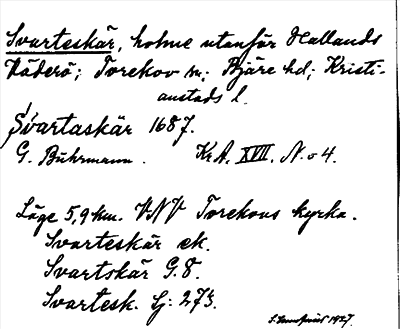 Svarteskär, holme utanför Hallands
Väderö; Torekov sn; Bjäre hd; Kristi-
anstads l.
Svartaskär 1687.
G. Buhrmann. Kr.A. XVII. No 4.
Läge 5,9 km. VNV Torekovs kyrka.
Svarteskär ek.
Svartskär G.
Svartesk. Lj: 273.
1927.